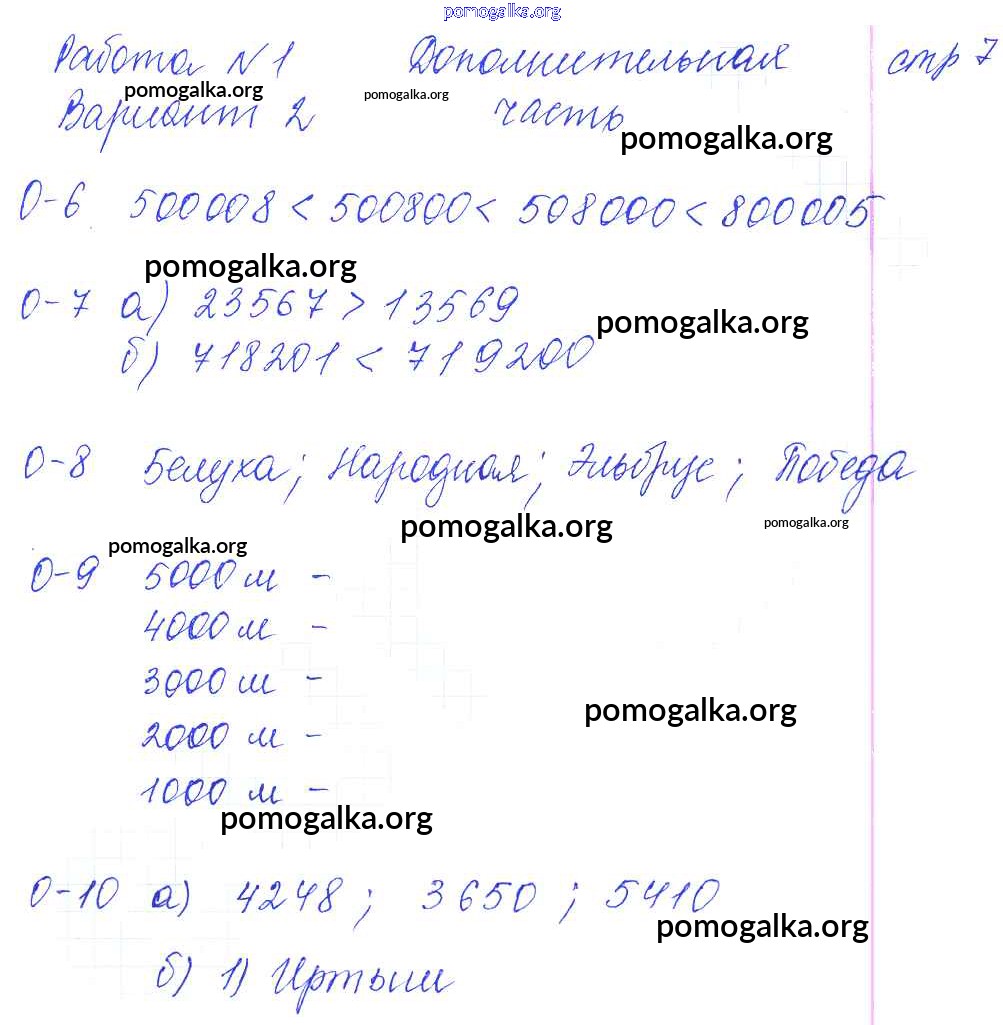 pomogalka.org
Работа №1 Дополнительная стр 7
pomogalka.org pomogalka.org
Вариант 2 часть
pomogalka.org
О-6 500008 < 500800 < 508000 < 800005
pomogalka.org
О-7 а) 23567 > 13569
pomogalka.org
б) 718201 < 719200
О-8 Белуха; Народная; Эльбрус; Победа
pomogalka.org pomogalka.org
pomogalka.org
О-9 5000 м -
4000 м -
3000 м -
pomogalka.org
2000 м -
1000 м -
pomogalka.org
О-10 а) 4248; 3650; 5410
pomogalka.org
б) 1) Иртыш